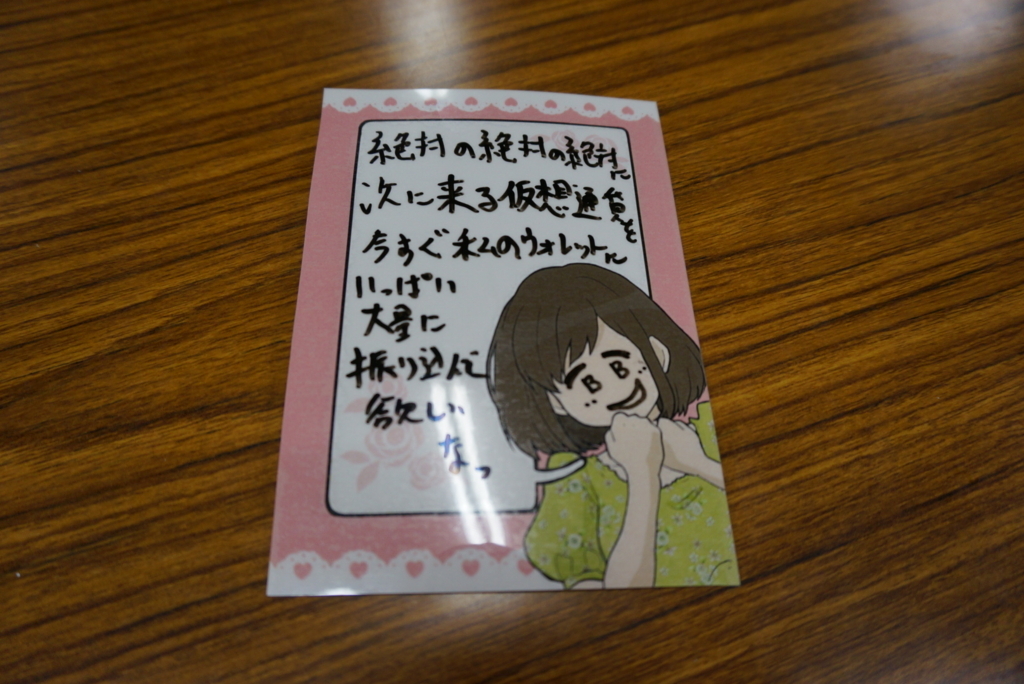 絶対の絶対の絶対に
次に来る仮想通貨を
今すぐ私のウォレットに
いっぱい
大量に
振り込んで
欲しい
なっ
B B